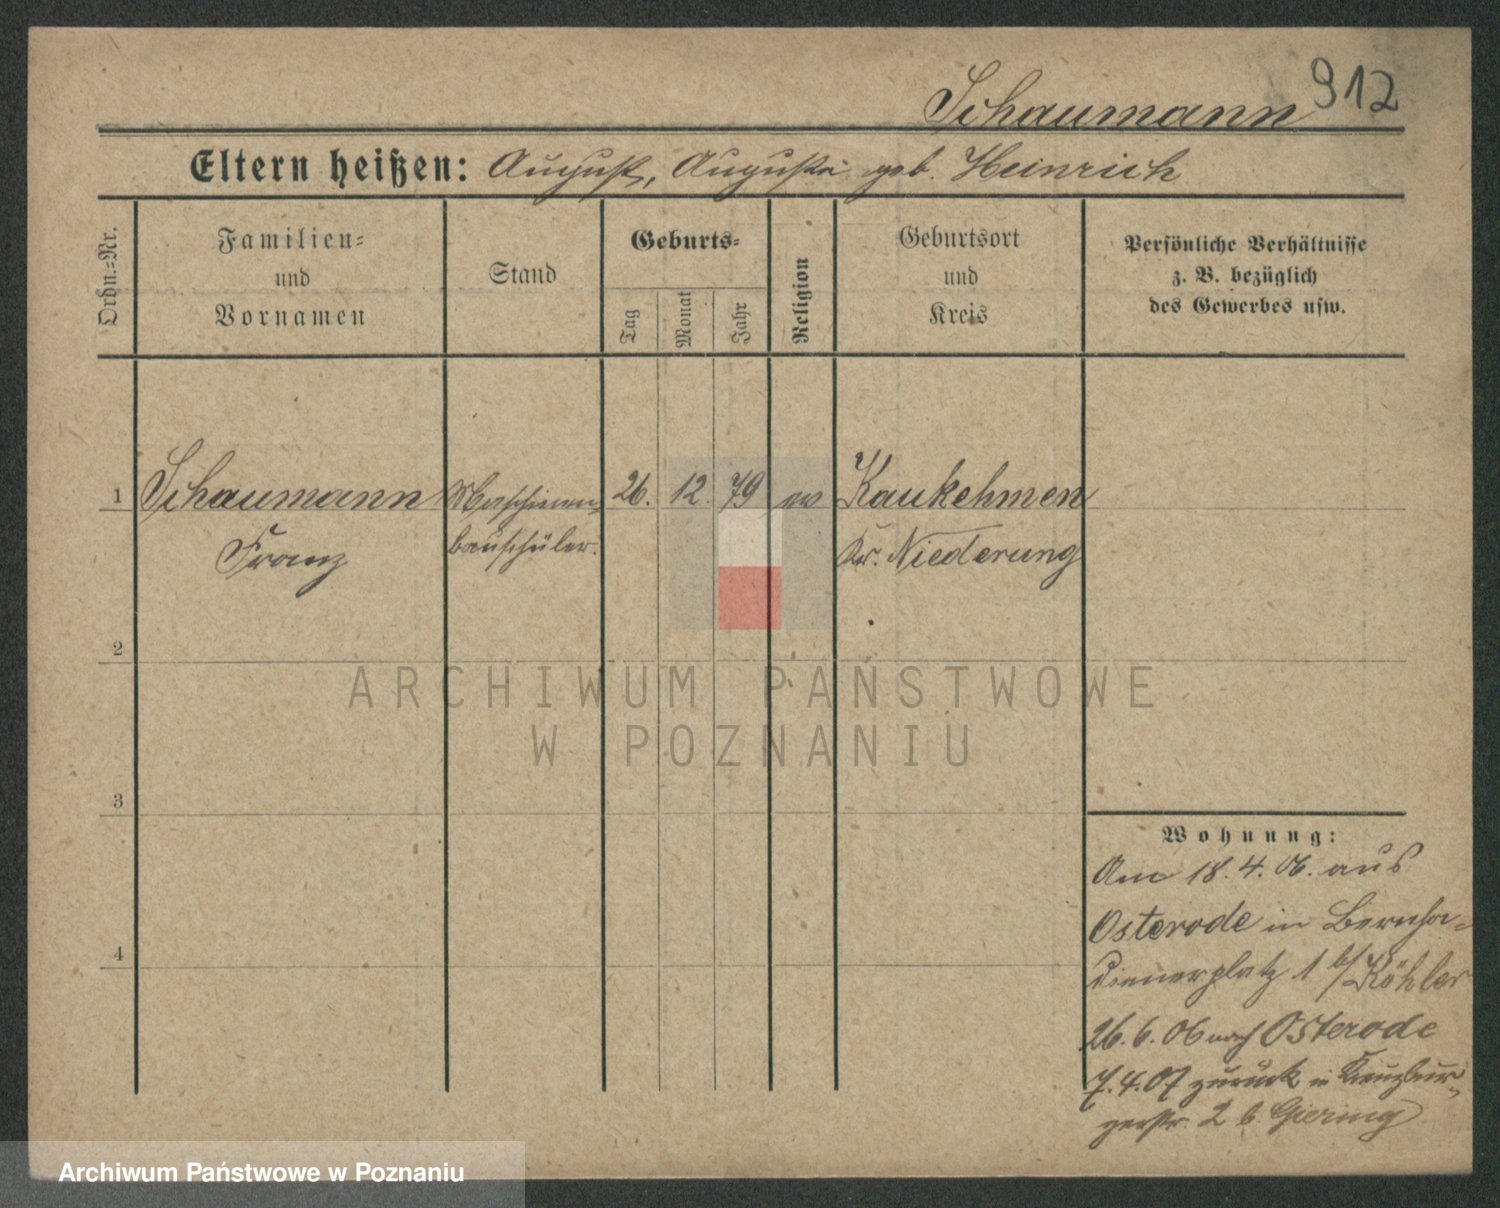 Schaumann 912
Eltern heißen: August, Auguste geb. Heinrich
Ordn.-Nr.
Familien-
und
Vornamen
Stand
Geburts-
Tag
Monat
Jahr
Religion
Geburtsort
und
Kreis
Persönliche Verhältnisse
z. B. bezüglich
des Gewerbes usw.
1 Schaumann Maschinen- 26. 12. 79 ev Kaukehmen
Franz bauschüler. Kr. Niederung
2
3
4
Wohnung:
Am 18. 4. 06. aus
Osterode in Bernha-
dienerplatz 1 b/ Köhler
26. 6. 06 nach Osterode
7. 4. 07 zurück in Kreuzbur-
gerstr. 2 b. Giering
ARCHIWUM PAŃSTWOWE
W POZNANIU
Archiwum Państwowe w Poznaniu